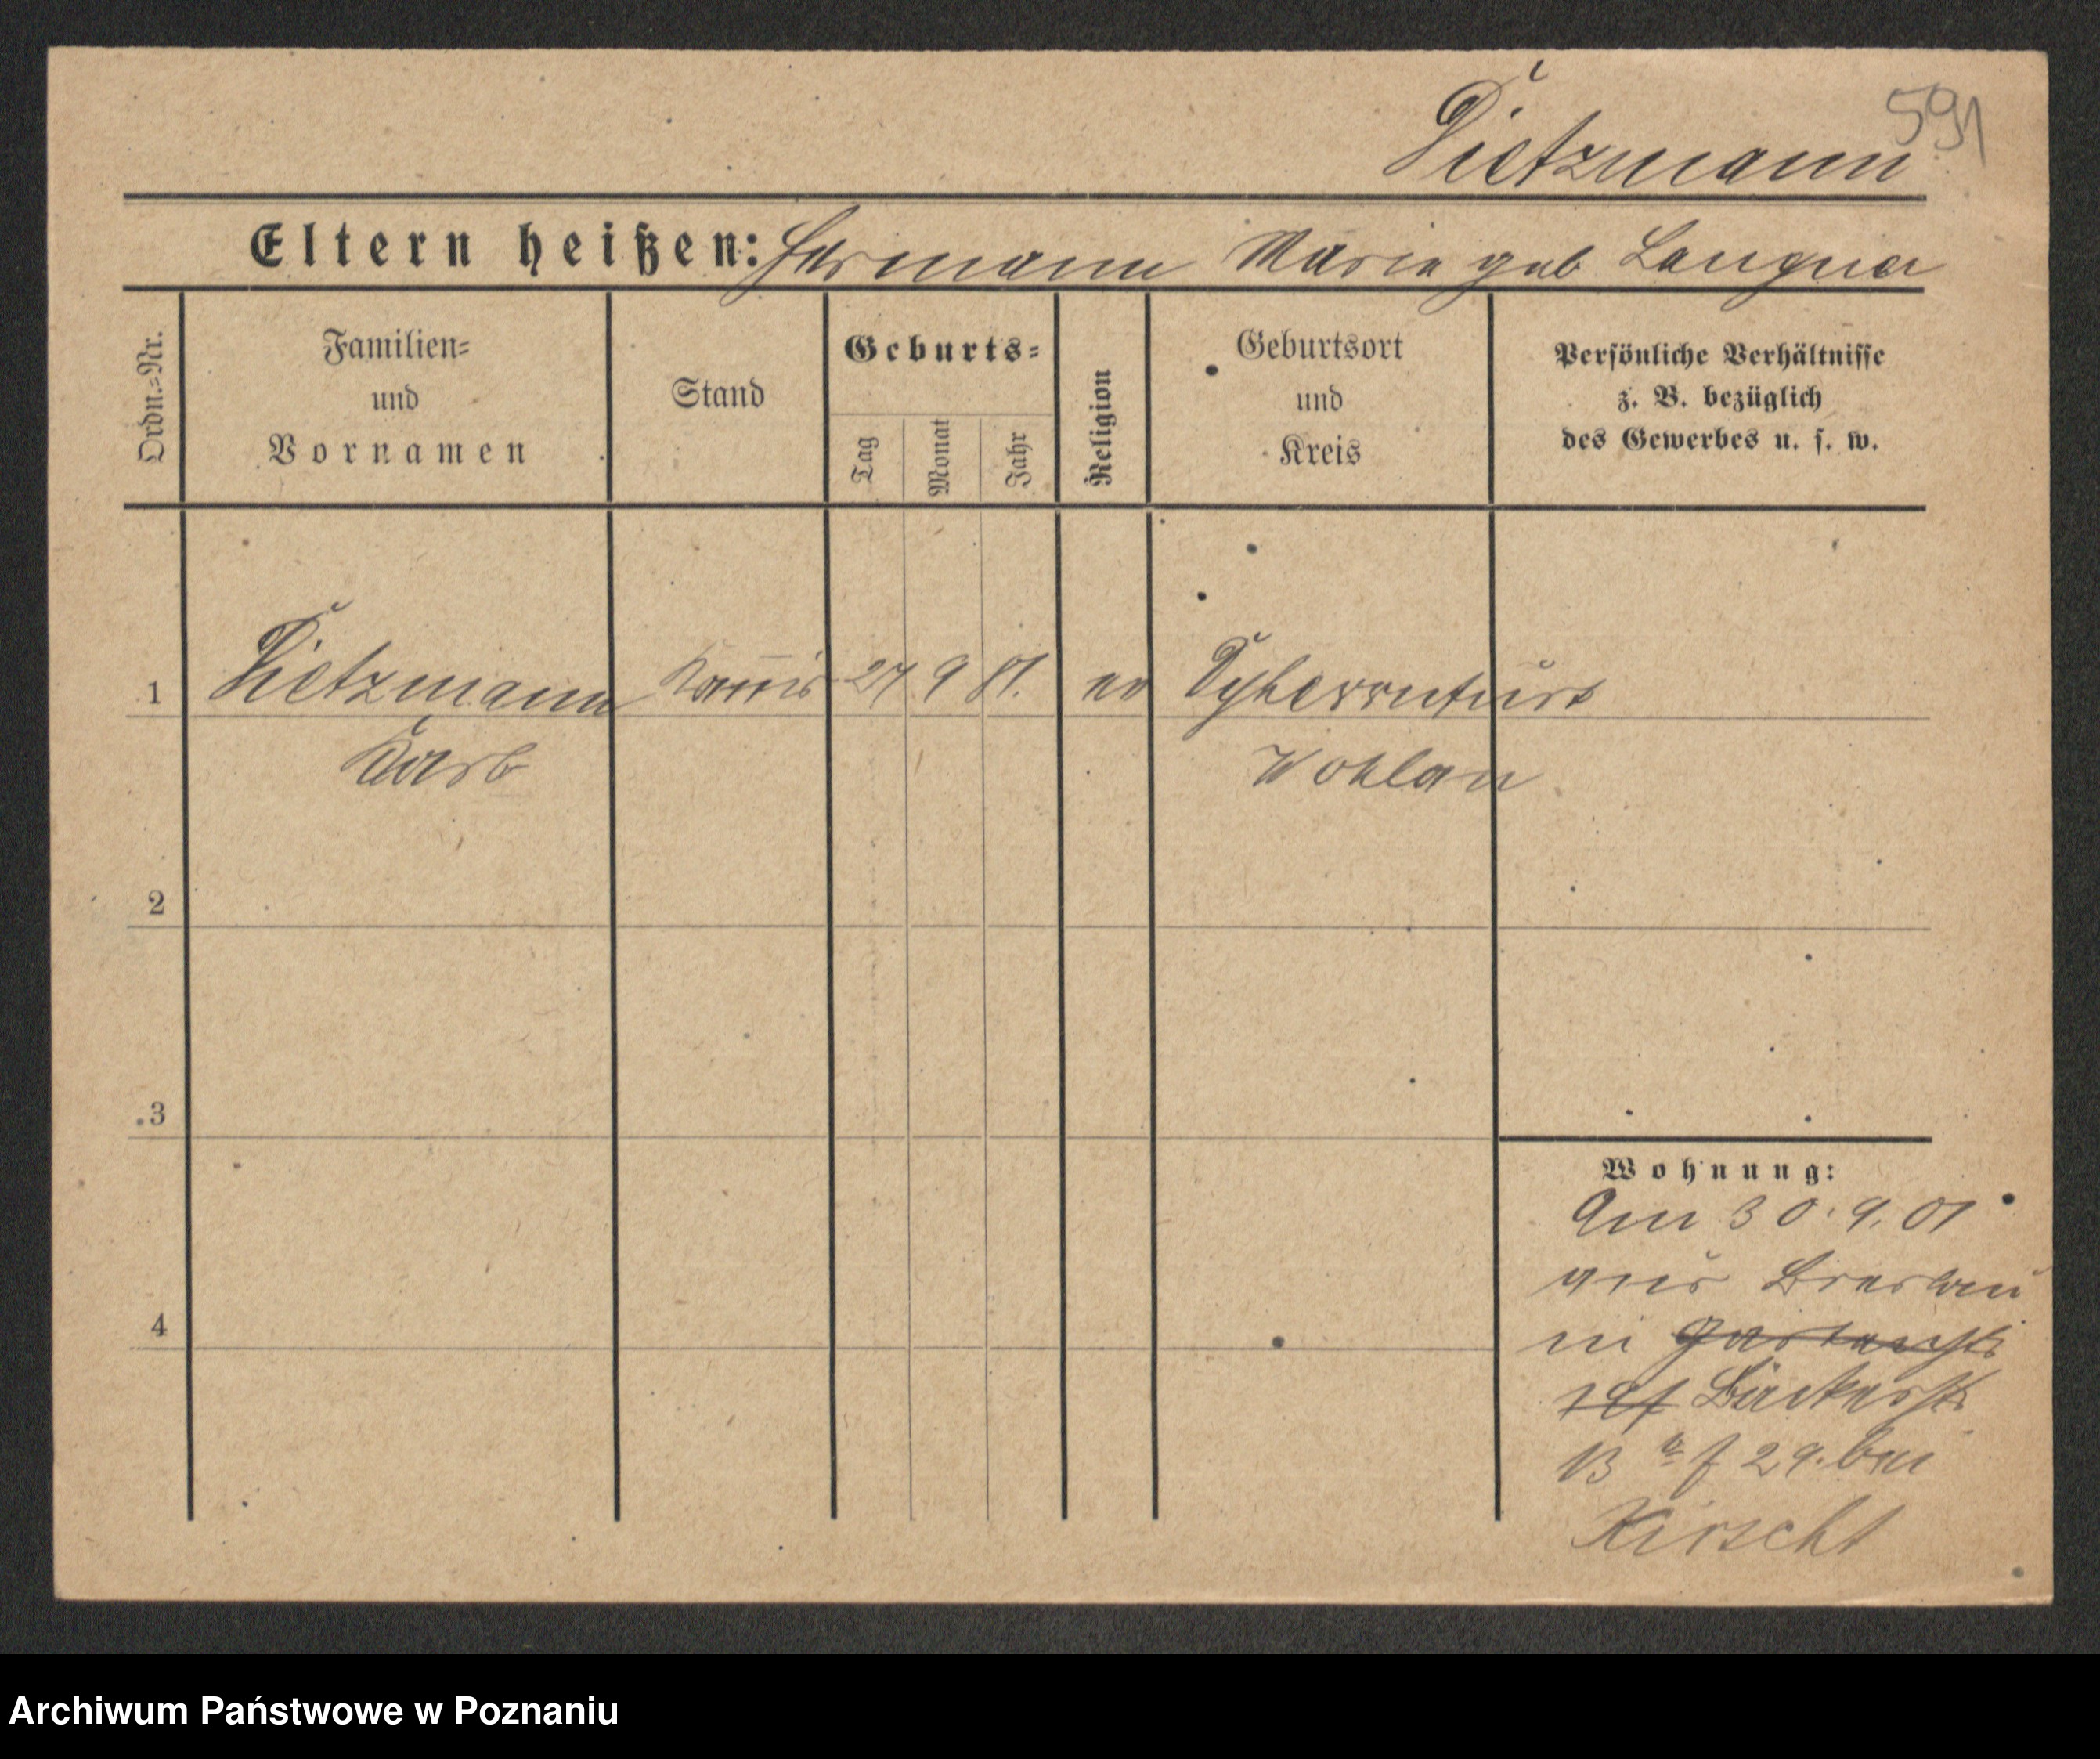 591
Dietzmann
Eltern heißen: Hermann Marie geb Langner
Ordn.=Nr.
Familien=
und
Vornamen
Stand
Geburts=
Tag
Monat
Jahr
Religion
Geburtsort
und
Kreis
Persönliche Verhältnisse
z. B. bezüglich
des Gewerbes u. s. w.
1 Dietzmann 27 9 81. ev Dyhernfurt
Karl Wohlau
2
3
4
Wohnung:
Am 30.9.01
aus Breslau
in
Bäckerstr
13 29. bei
Kirscht
Archiwum Państwowe w Poznaniu